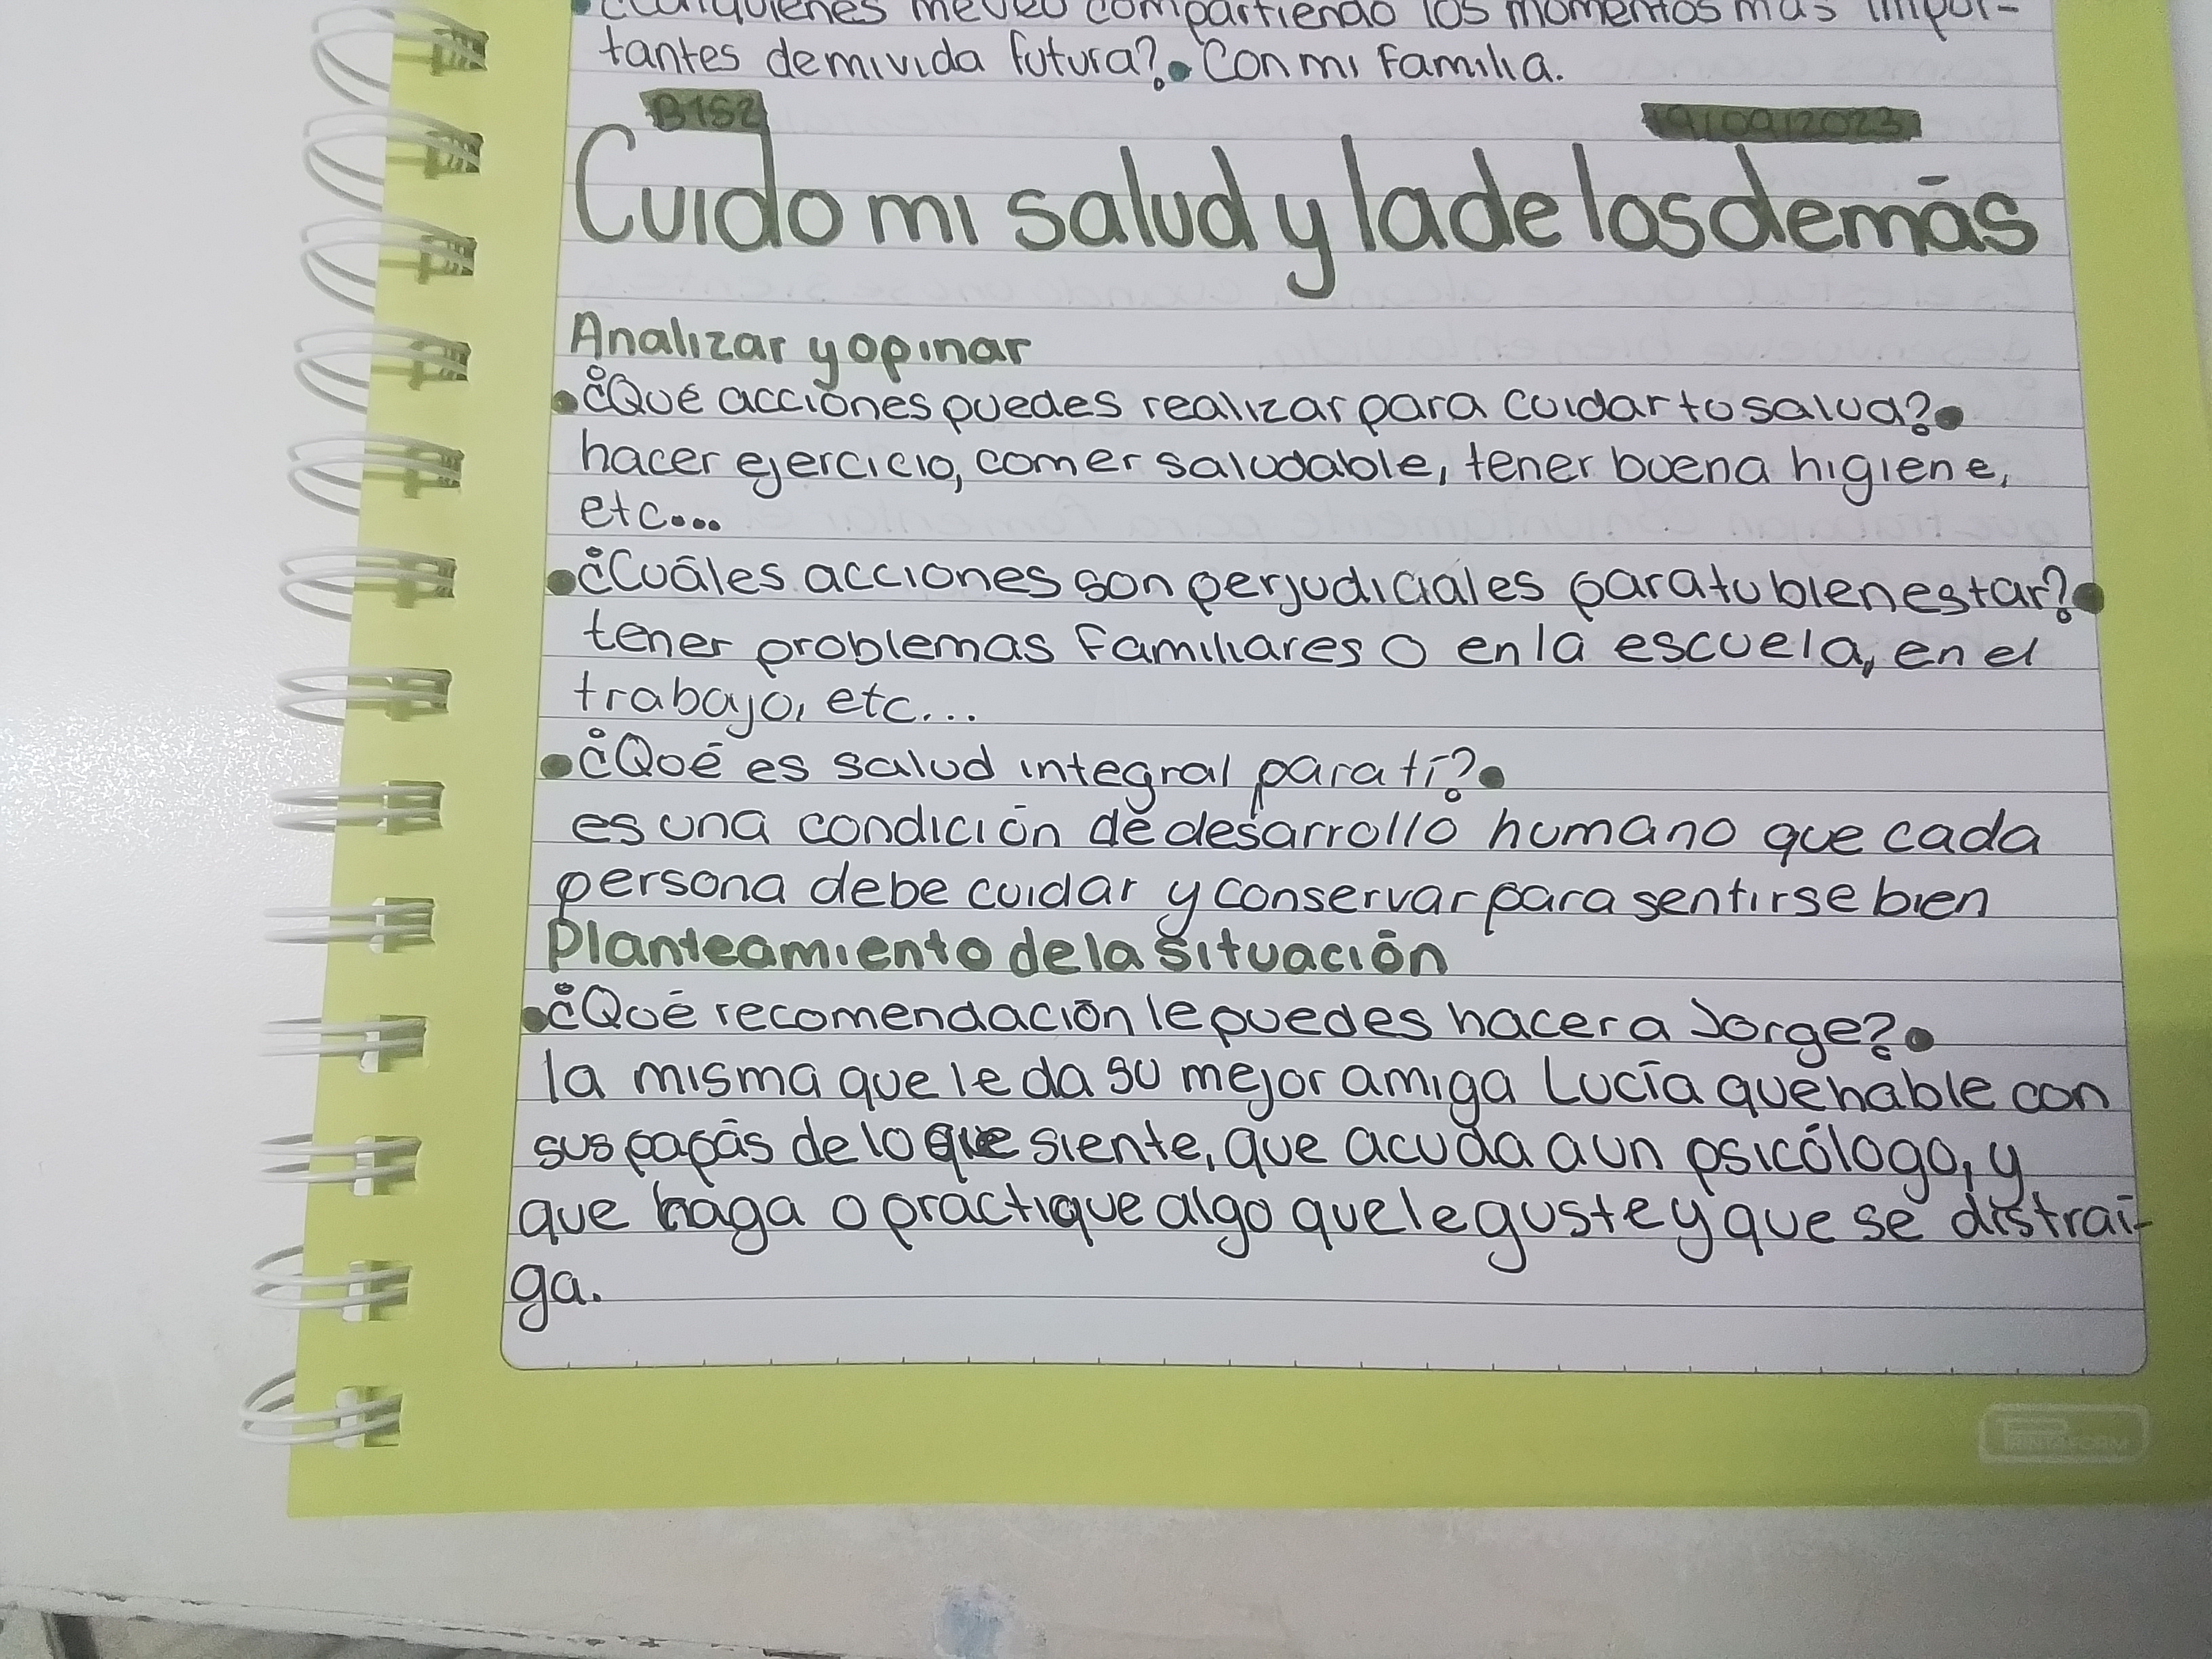 ¿Con quienes me veo compartiendo los momentos más impor-
tantes de mi vida futura? Con mi familia.
B1S2
19/09/2023
Cuido mi salud y la de los demás
Analizar y opinar
¿Qué acciones puedes realizar para cuidar tu salud?
hacer ejercicio, comer saludable, tener buena higiene,
etc...
¿Cuáles acciones son perjudiciales para tu bienestar?
tener problemas familiares o en la escuela, en el
trabajo, etc...
¿Qué es salud integral para tí?
es una condición de desarrollo humano que cada
persona debe cuidar y conservar para sentirse bien
Planteamiento de la situación
¿Qué recomendación le puedes hacer a Jorge?
la misma que le da su mejor amiga Lucía que hable con
sus papás de lo que siente, que acuda a un psicólogo, y
que haga o practique algo que le guste y que se distrai-
ga.
PRINTAFORM